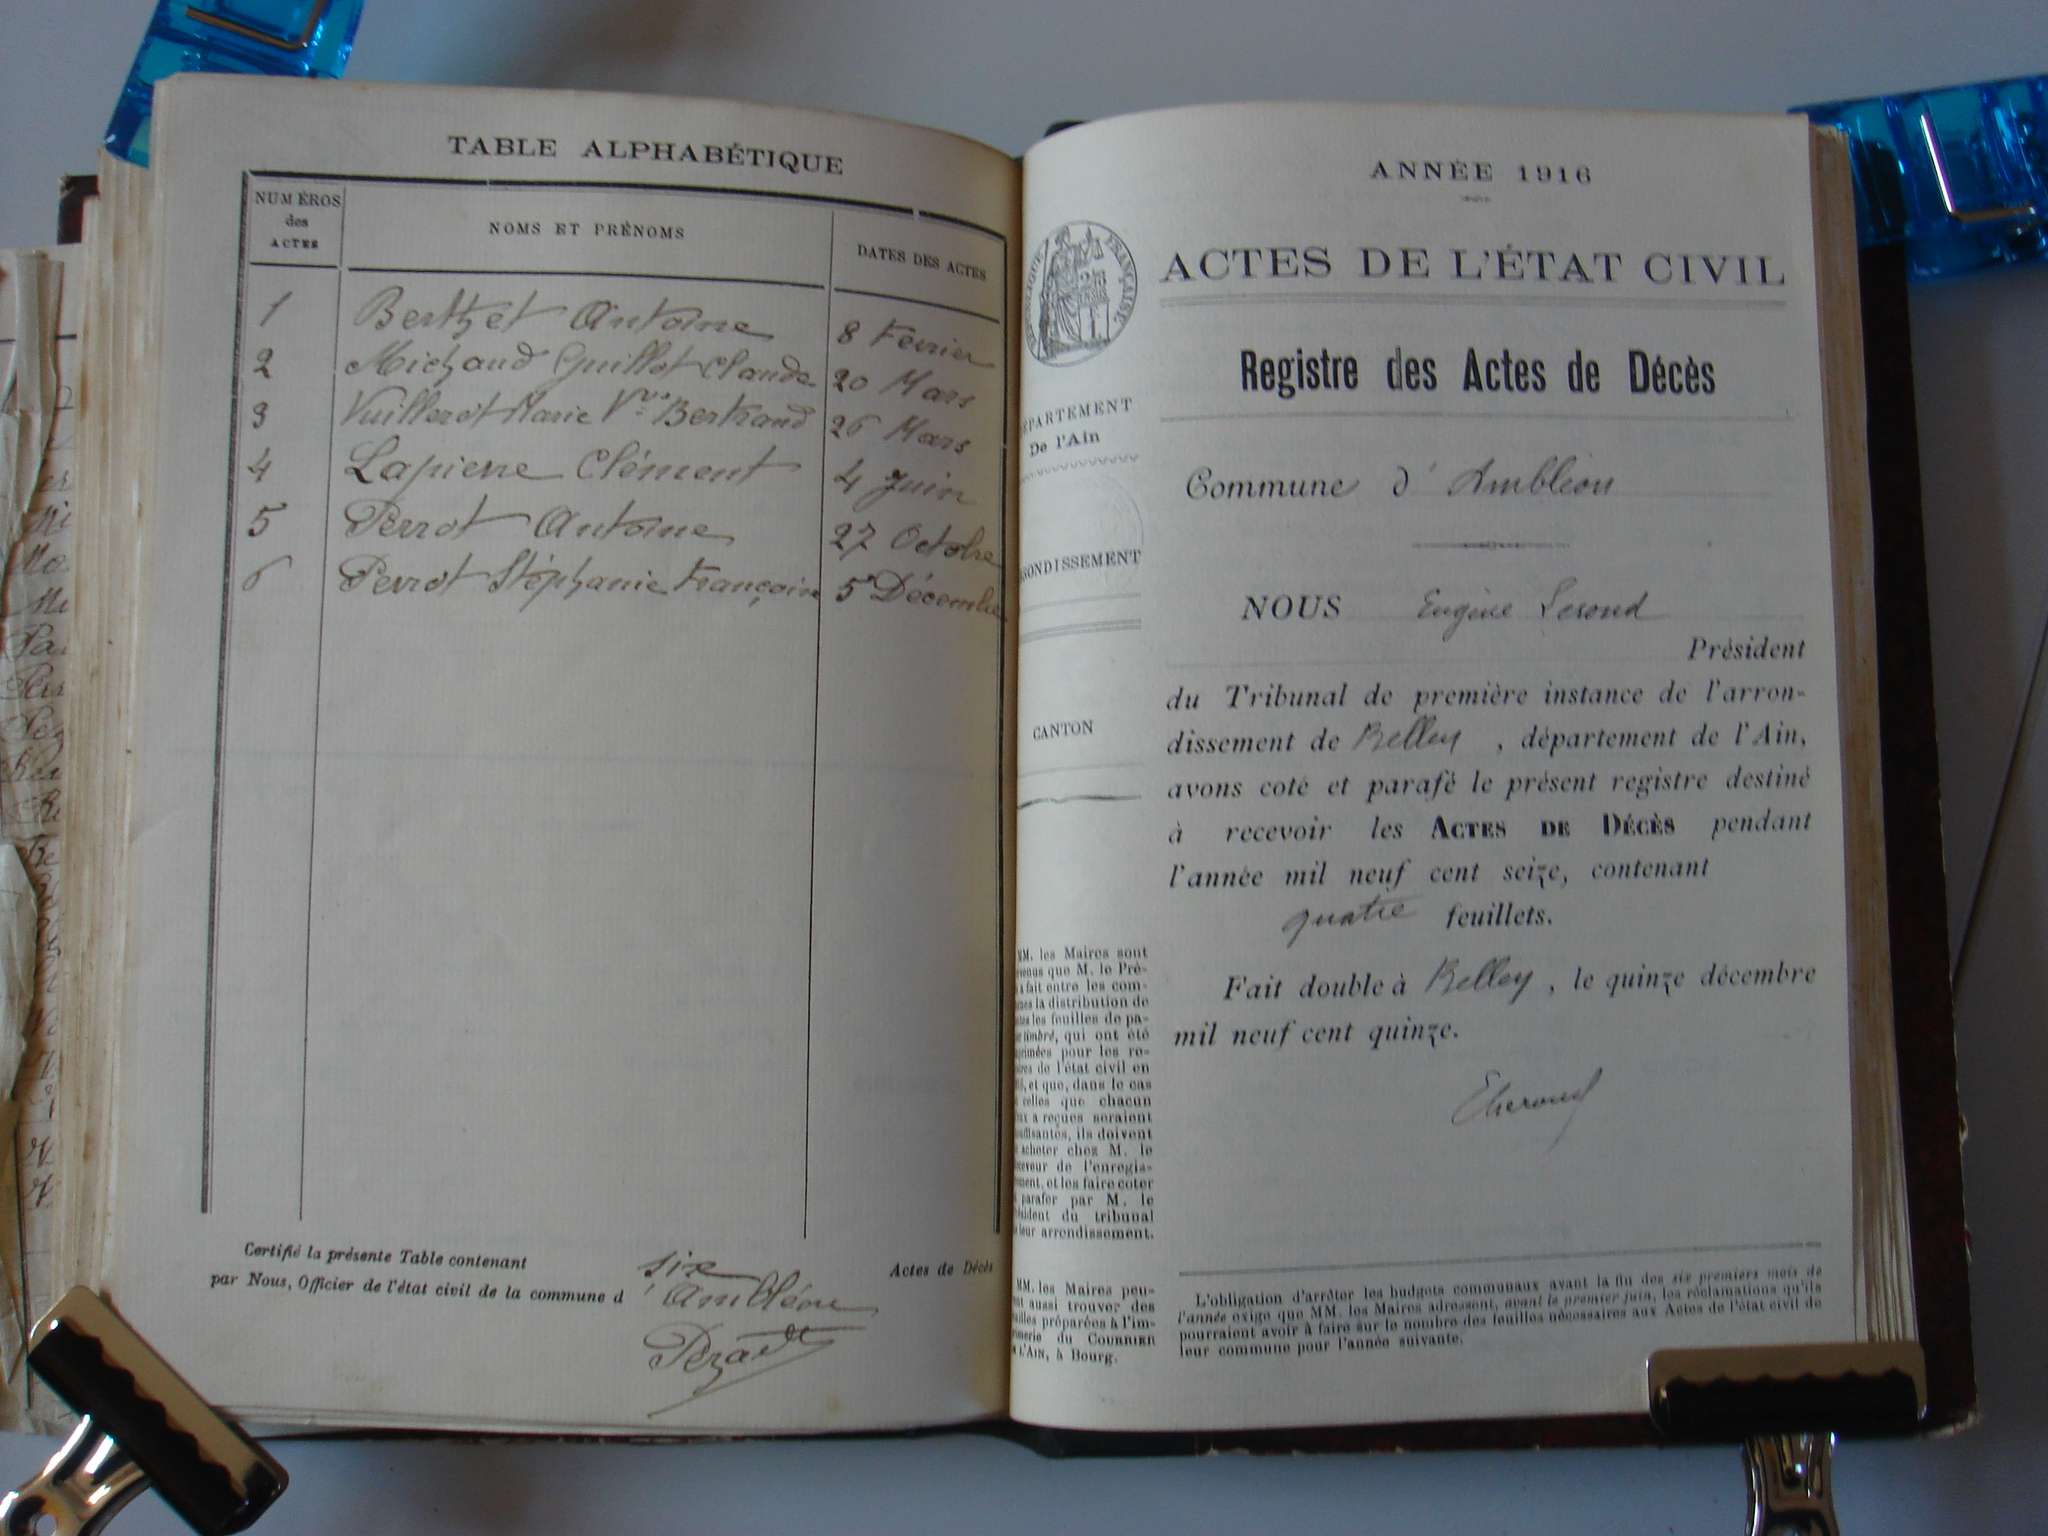 TABLE ALPHABÉTIQUE
NUMÉROS
des
ACTES
NOMS ET PRÉNOMS
DATES DES ACTES
1 Berthet Antoine 8 Fevrier
2 Michaud Guillot Claude 20 Mars
3 Vuillerot Marie Vve Bertrand 26 Mars
4 Lapierre Clément 4 Juin
5 Perrot Antoine 27 Octobre
6 Perrot Stéphanie Françoise 5 Décembre
Certifié la présente Table contenant six Actes de Décès
par Nous, Officier de l'état civil de la commune d'Ambléon
ANNÉE 1916
RÉPUBLIQUE FRANÇAISE
ACTES DE L'ÉTAT CIVIL
Registre des Actes de Décès
DÉPARTEMENT
De l'Ain
Commune d'Ambléon
ARRONDISSEMENT
CANTON
NOUS Eugène
Président
du Tribunal de première instance de l'arron-
dissement de Belley, département de l'Ain,
avons coté et parafé le présent registre destiné
à recevoir les ACTES DE DÉCÈS pendant
l'année mil neuf cent seize, contenant
quatre feuillets.
Fait double à Belley, le quinze décembre
mil neuf cent quinze.
MM. les Maires sont
que M. le Pré-
fait entre les com-
la distribution de
les feuilles de pa-
timbré, qui ont été
pour les re-
de l'état civil en
et que, dans le cas
celles que chacun
a reçues seraient
ils doivent
acheter chez M. le
de l'enregis-
et les faire coter
parafer par M. le
du tribunal
leur arrondissement.
MM. les Maires peu-
aussi trouver des
préparées à l'im-
du COURRIER
L'AIN, à Bourg.
L'obligation d'arrêter les budgets communaux avant la fin des six premiers mois de
l'année exige que MM. les Maires adressent, avant le premier juin, les réclamations qu'ils
pourraient avoir à faire sur le nombre des feuilles nécessaires aux Actes de l'état civil de
leur commune pour l'année suivante.